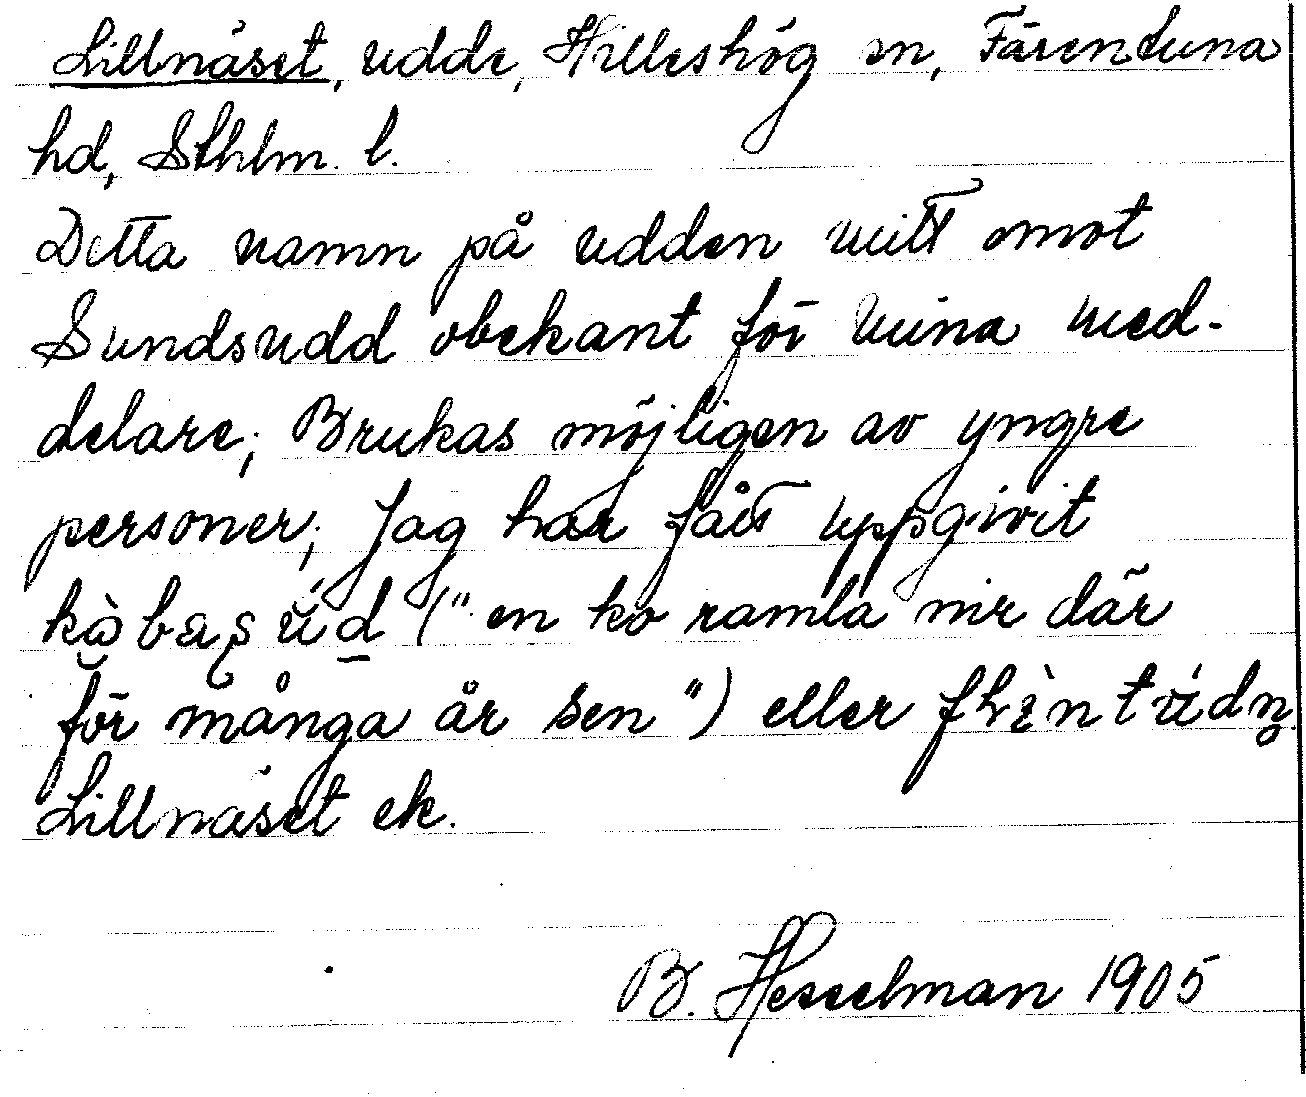 Lillnäset, udde, Hilleshög sn, Färentuna
hd, Sthlm. l.
Detta namn på udden mitt emot
Sundsudd obekant för mina med-
delare; Brukas möjligen av yngre
personer; Jag har fått uppgivit
("en ko ramla ner där
för många år sen") eller
Lillnäset ek.
B. Hesselman 1905